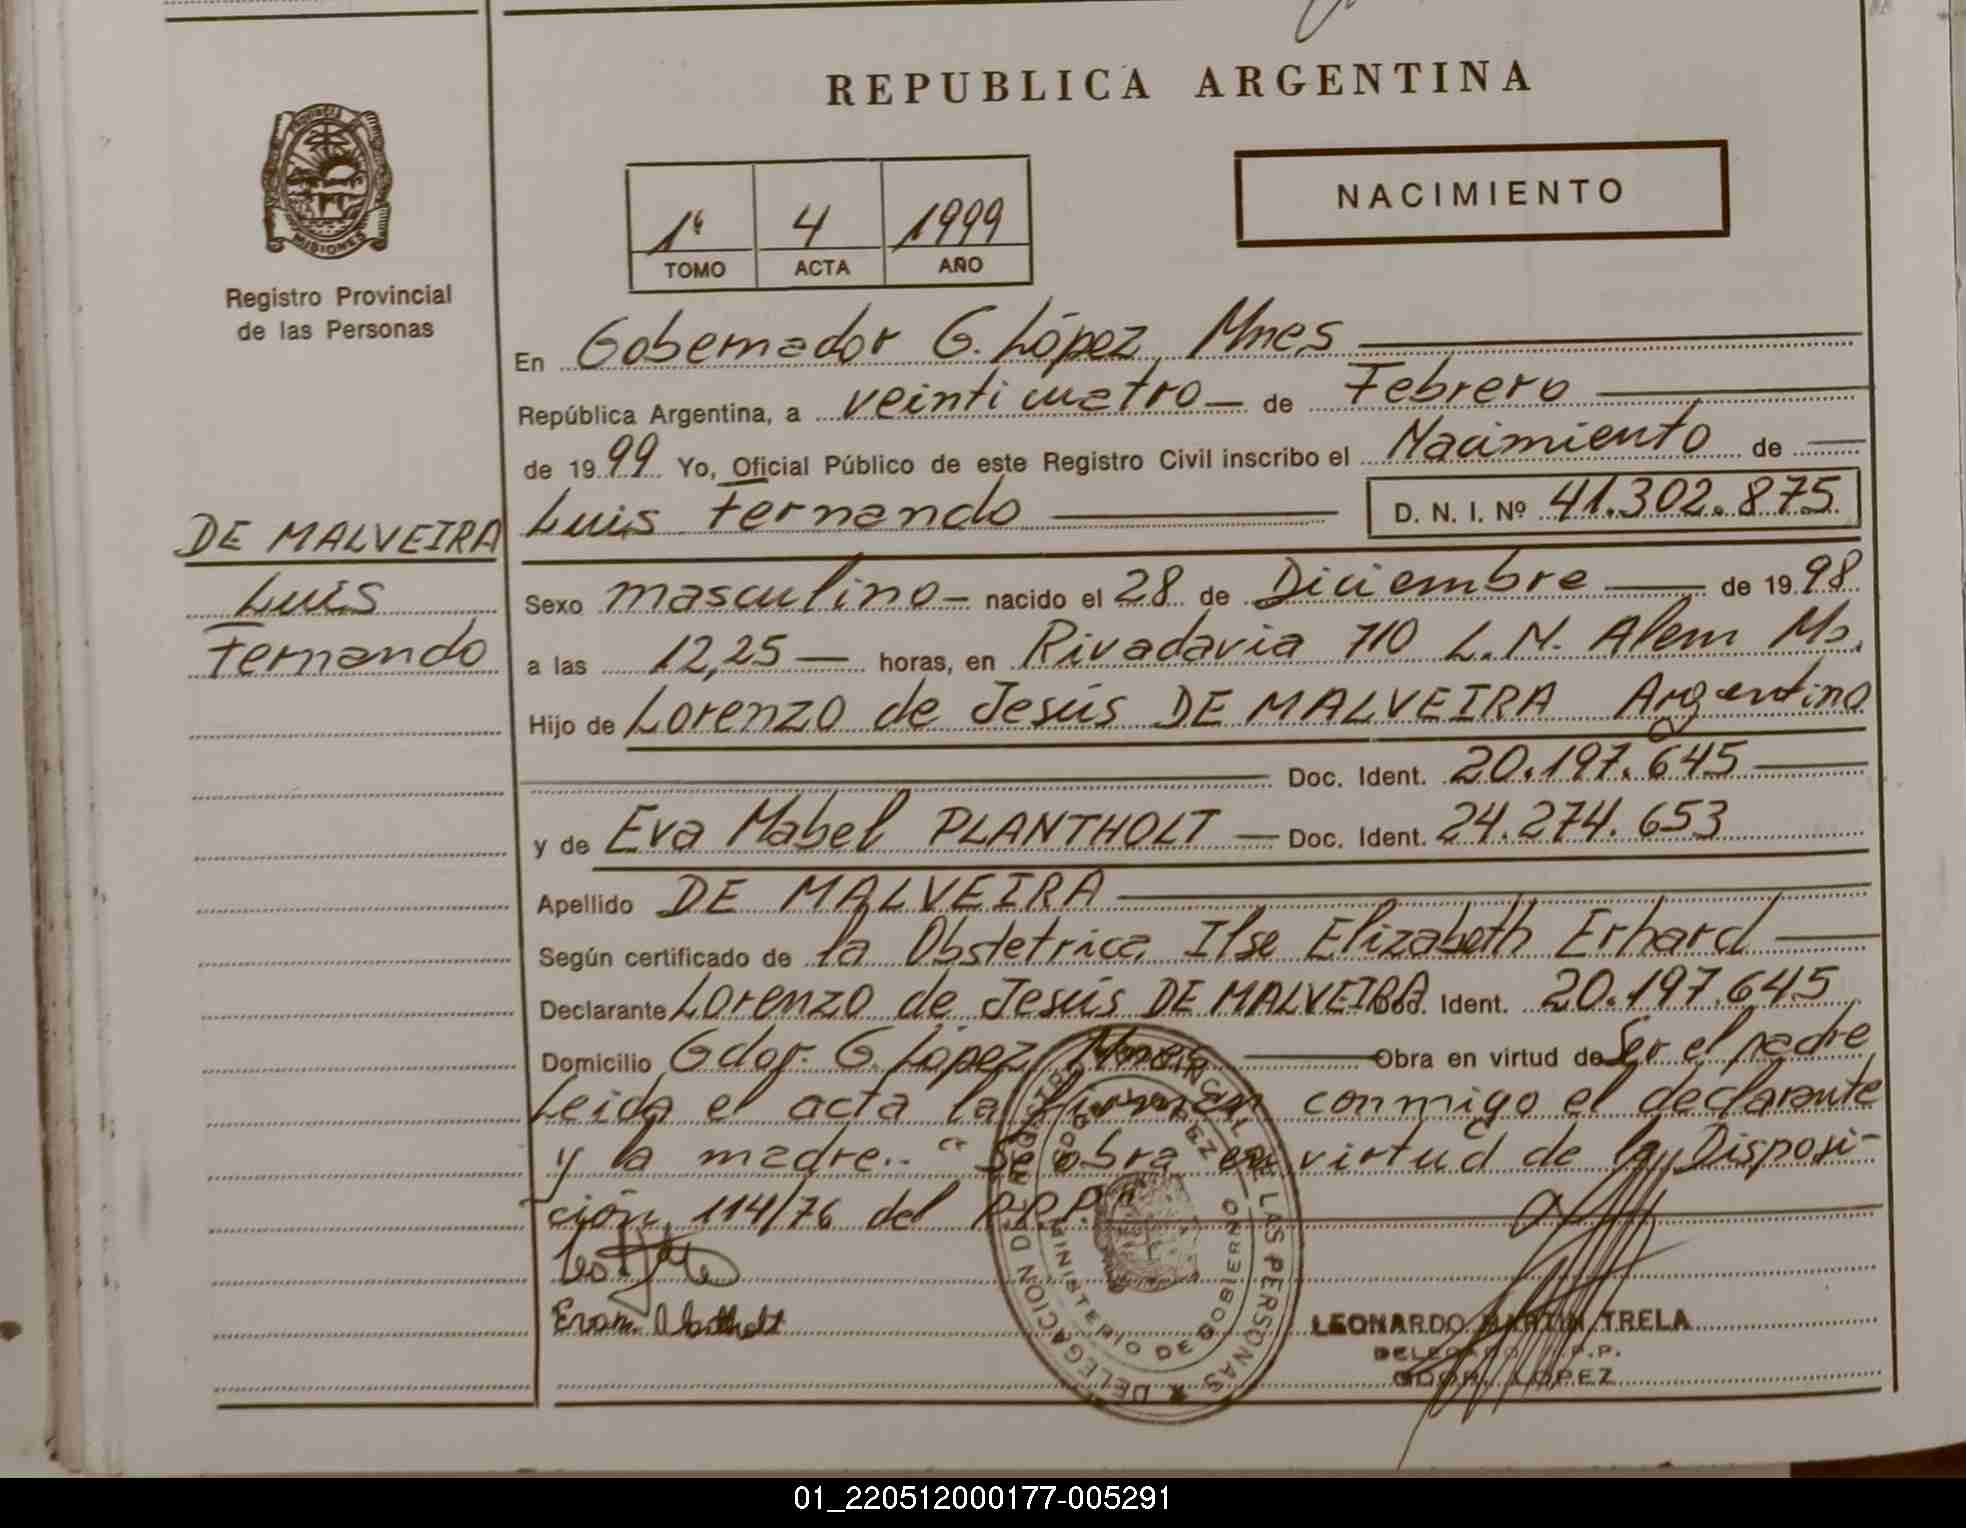 REPUBLICA ARGENTINA
MISIONES
Registro Provincial
de las Personas
1º 4 1999
TOMO ACTA AÑO
NACIMIENTO
En Gobernador G. López Mnes
República Argentina, a veinticuatro de Febrero
de 1999 Yo, Oficial Público de este Registro Civil inscribo el Nacimiento de
Luis Fernando D. N. I. Nº 41.302.875
DE MALVEIRA
Luis
Fernando
Sexo masculino nacido el 28 de Diciembre de 1998
a las 12,25 horas, en Rivadavia 710 L. N. Alem Ms.
Hijo de Lorenzo de Jesús DE MALVEIRA Argentino
Doc. Ident. 20.197.645
y de Eva Mabel PLANTHOLT Doc. Ident. 24.274.653
Apellido DE MALVEIRA
Según certificado de la Obstetrica Ilse Elizabeth Erhard
Declarante Lorenzo de Jesús DE MALVEIRA Doc. Ident. 20.197.645
Domicilio Gdor. G. López Mnes Obra en virtud de Ser el padre
Leida el acta la firman conmigo el declarante
y la madre.. "Se obra en virtud de la Disposi-
ción 114/76 del R.P.P."
DELEGACION DE REGISTRO PROVINCIAL DE LAS PERSONAS
GDOR. LOPEZ
MINISTERIO DE GOBIERNO
LEONARDO MARTIN TRELA
DELEGADO R.P.P.
GDOR. LOPEZ
01_220512000177-005291